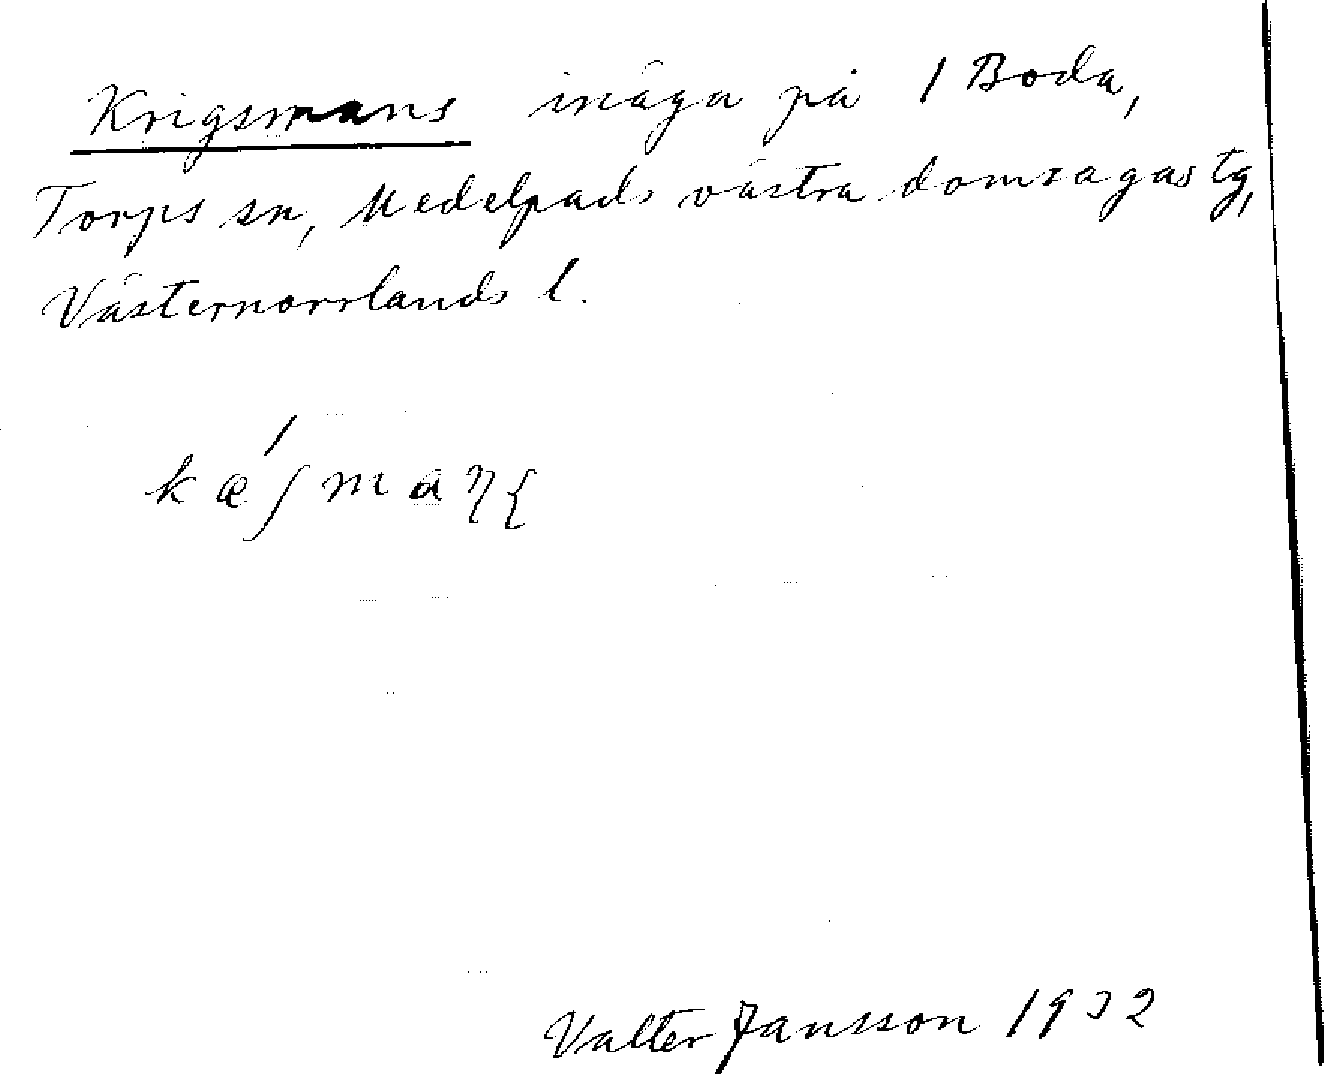 Krigsmans inäga på 1 Boda,
Torps sn, Medelpads västra domsagas tg,
Västernorrlands l.
Valter Jansson 1932